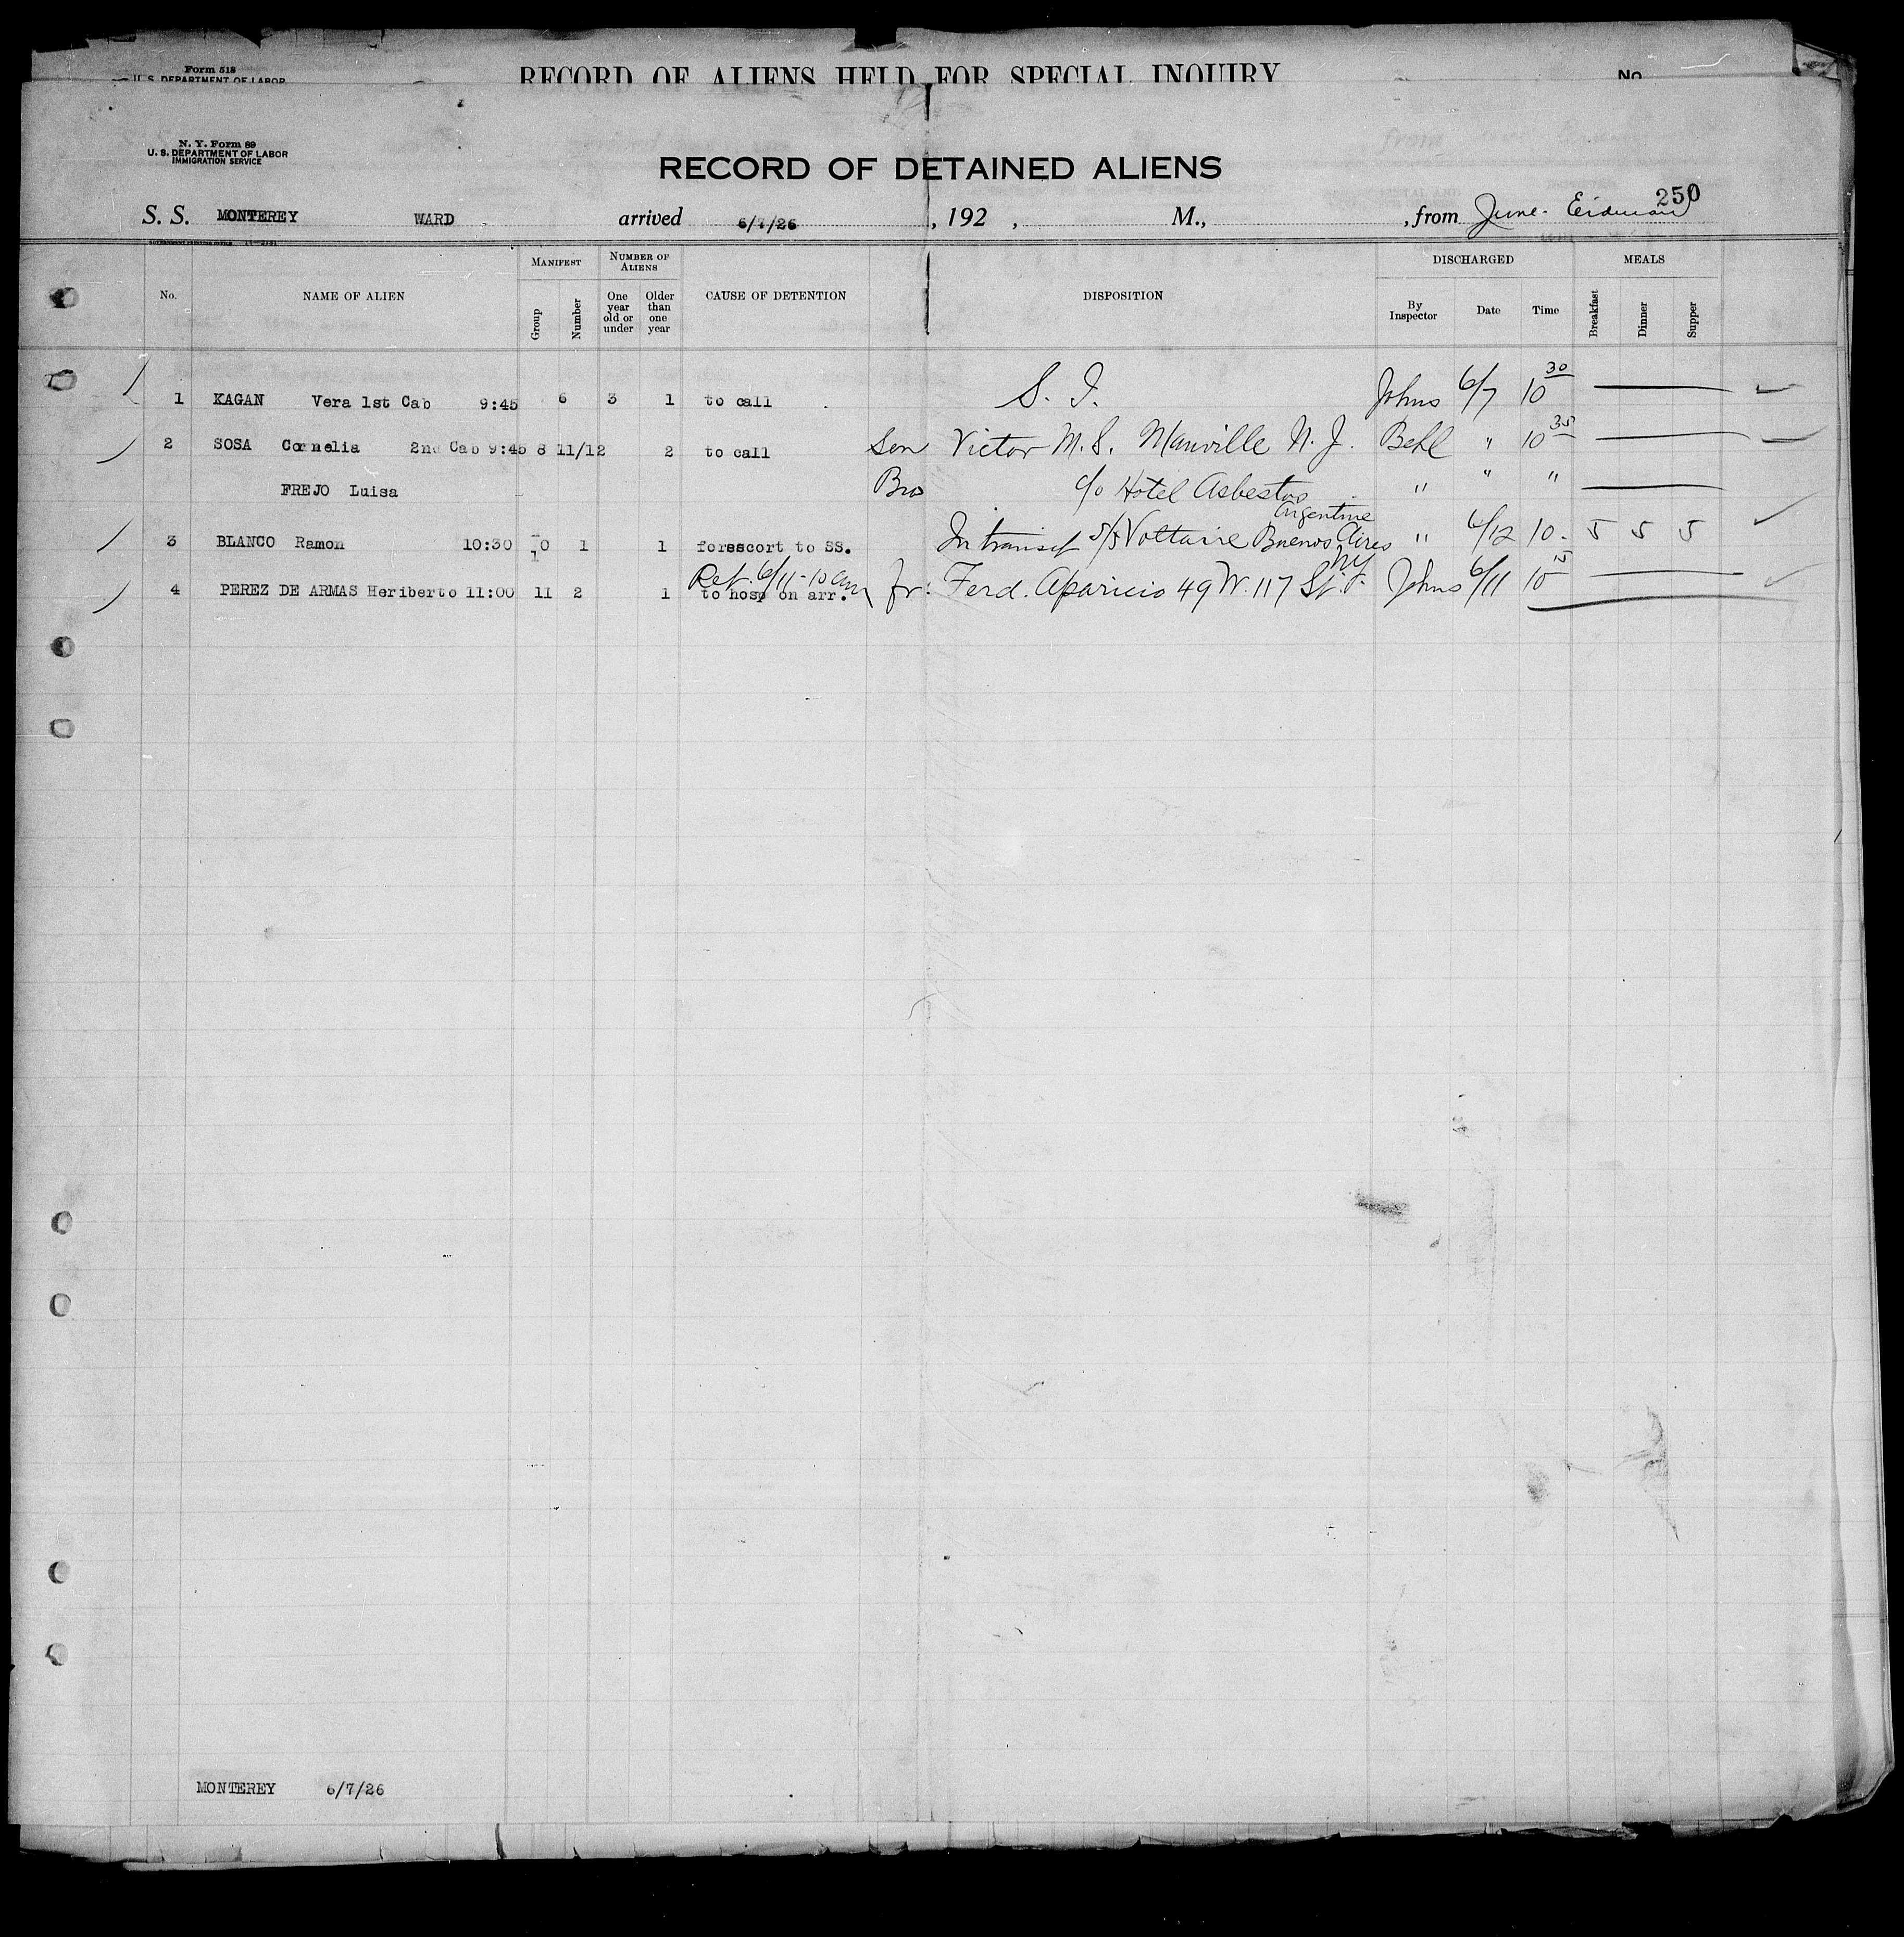 Form 518
U. S. DEPARTMENT OF LABOR
RECORD OF ALIENS HELD FOR SPECIAL INQUIRY
No.
N. Y. Form 89
U. S. DEPARTMENT OF LABOR
IMMIGRATION SERVICE
RECORD OF DETAINED ALIENS
250
S. S. MONTEREY WARD arrived 6/7/26, 192 , M., , from June - Eidman
GOVERNMENT PRINTING OFFICE
MANIFEST NUMBER OF ALIENS DISCHARGED MEALS
No. NAME OF ALIEN Group Number One year old or under Older than one year CAUSE OF DETENTION DISPOSITION By Inspector Date Time Breakfast Dinner Supper
1 KAGAN Vera 1st Cab 9:45 6 3 1 to call S. I. Johns 6/7 10 30
2 SOSA Cornelia 2nd Cab 9:45 8 11/12 2 to call Son Victor M. S. Manville N. J. Behl " 10 35
FREJO Luisa Bro c/o Hotel Asbestos " " "
Argentine
3 BLANCO Ramon 10:30 10 1 1 foresscort to SS. In transit S/S Voltaire Buenos Aires " 6/12 10. 5 5 5
Ref. 6/11-10 am NY
4 PEREZ DE ARMAS Heriberto 11:00 11 2 1 to hosp on arr. fr: Ferd. Aparicio 49 W. 117 St. Johns 6/11 10 15
MONTEREY 6/7/26